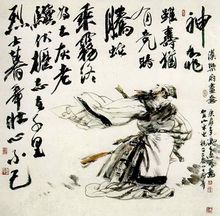 神龜
雖壽猶
有竟時
騰蛇
乘霧終
為土灰老
驥伏櫪志在千里
烈士暮年壯心不已
漢樂府